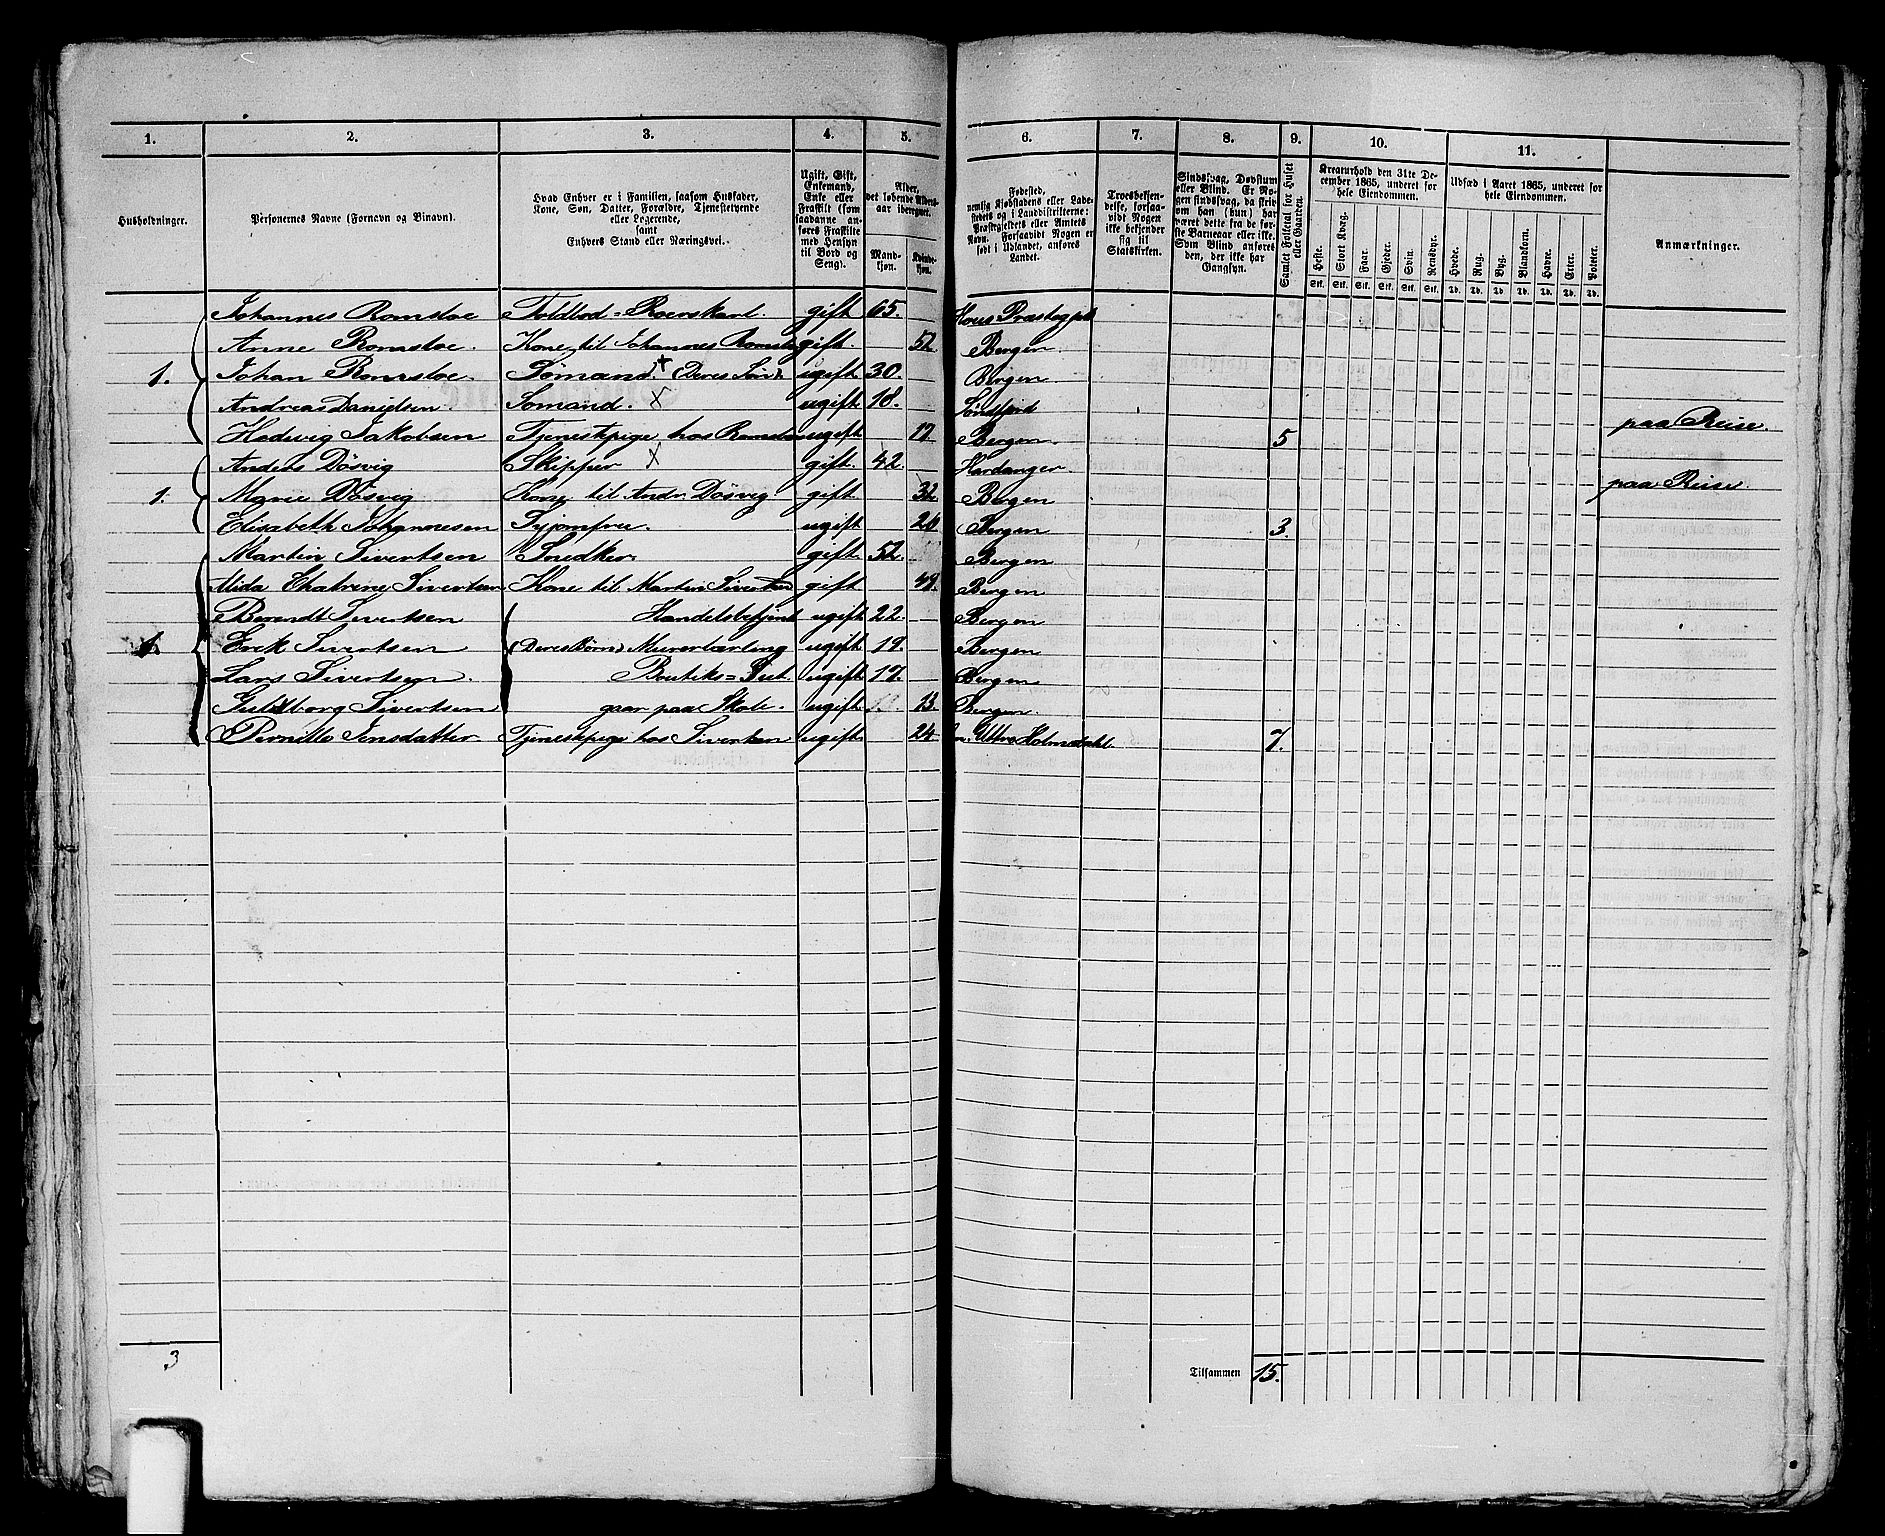 1. 2. 3. 4. 5. 6. 7. 8. 9. 10. 11.
Husholdninger.
Personernes Navne (Fornavn og Binavn).
Hvad Enhver er i Familien, saasom Husfader,
Kone, Søn, Datter, Forældre, Tjenestetyende
eller Logerende,
samt
Enhvers Stand eller Næringsvei.
Ugift, Gift,
Enkemand,
Enke eller
Fraskilt (som
saadanne an-
føres Fraskilte
med Hensyn
til Bord og
Seng).
Alder,
det løbende Alders-
aar iberegnet.
Mand-
kjøn.
Kvinde-
kjøn.
Fødested,
nemlig Kjøbstadens eller Lade-
stedets og i Landdistrikterne:
Præstegjeldets eller Amtets
Navn. Forsaavidt Nogen er
født i Udlandet, anføres
Landet.
Troesbekjen-
delse, forsaa-
vidt Nogen
ikke bekjender
sig til
Statskirken.
Sindssvag, Døvstum
eller Blind. Er No-
gen sindssvag, da skriv
om han (hun) har
været dette fra de før-
ste Barneaar eller ikke.
Som Blind anføres
den, der ikke har
Gangsyn.
Samlet Folketal for Huset
eller Gaarden.
Kreaturhold den 31te De-
cember 1865, underet for
hele Eiendommen.
Heste. Stort Kvæg. Faar. Gjeder. Svin. Rensdyr.
Stk. Stk. Stk. Stk. Stk. Stk.
Udsæd i Aaret 1865, underet for
hele Eiendommen.
Hvede. Rug. Byg. Blandkorn. Havre. Erter. Poteter.
Td. Td. Td. Td. Td. Td. Td.
Anmærkninger.
Johannes Romsloe Toldbod-Roerskarl. gift 65. Hous Præstegjeld
Anne Romsloe. Kone til Johannes Romsloe gift. 52 Bergen.
1. Johan Romsloe. Sømand + (Deres Søn) ugift 30. Bergen
Andreas Danielsen. Sømand. x ugift 18. Søndfjord paa Reise.
Hedevig Jakobsen Tjenestpige hos Romsloe ugift 17 Bergen. 5
Anders Døsvig Skipper x gift. 42 Hardanger paa Reise.
1. Marie Døsvig Kone til Andr. Døsvig gift. 32 Bergen
Elisabeth Johannesen Syjomfru. ugift 20 Bergen 3.
Martin Sivertsen Snedker. gift. 52. Bergen
Kathrine Sivertsen Kone til Martin Sivertsen gift 48. Bergen
Berendt Sivertsen Handelsbetjent ugift 22. Bergen
1. Erik Sivertsen (Deres Børn) Murerlærling ugift 19. Bergen
Lars Sivertsen. Boutiks-Gut. ugift 17. Bergen
Guldborg Sivertsen gaar paa Skole. ugift 13. Bergen.
Pernille Jensdatter Tjenestpige hos Sivertsen ugift. 24 Yttre Holmedahl. 7.
3 Tilsammen 15.